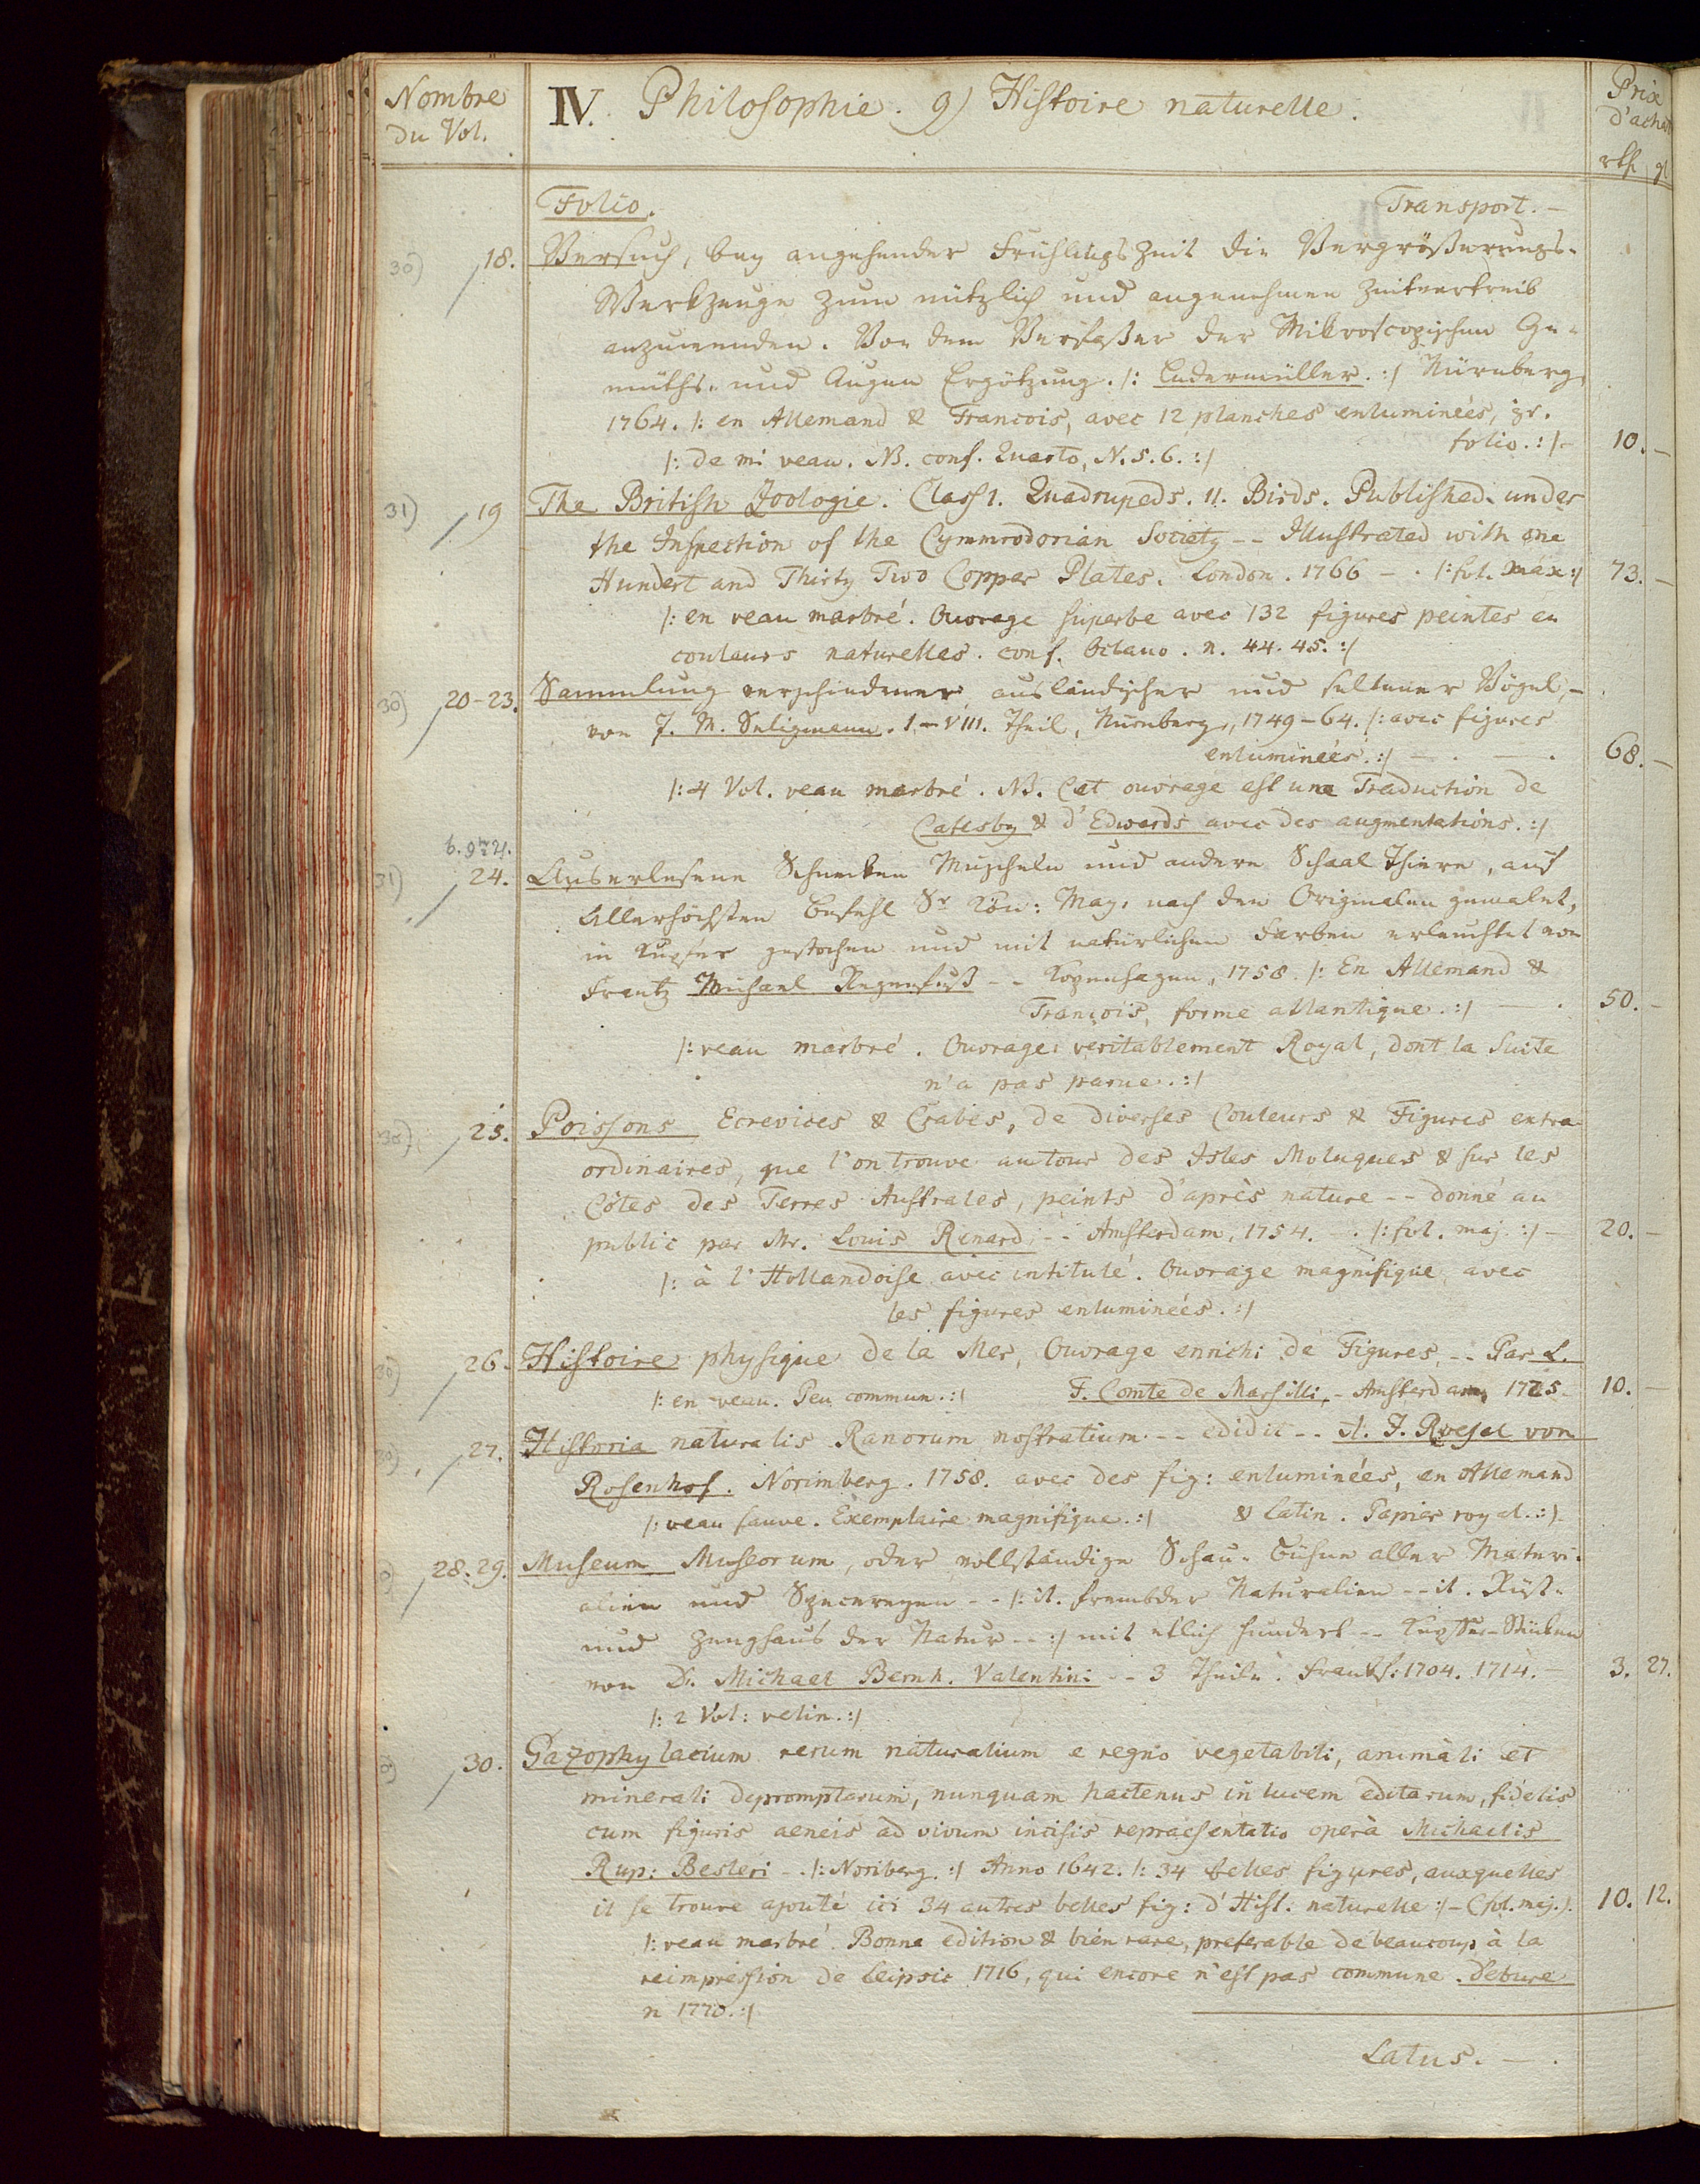 Nombre
du Vol.
IV. Philosophie. g) Histoire naturelle.
Prix
d'achat
rth. gl
Folio. Transport. –
30) 18. Versuch, bey angehender Frühlings Zeit die Vergrößerungs-
Werkzeuge zum nützlich und angenehmen Zeitvertreib
anzuwenden. Von dem Verfaßer der Mikroscopischen Ge-
müths- und Augen Ergötzung. /: Ledermüller. :/ Nürnberg,
1764. /: en Allemand & Francois, avec 12 planches enluminées, gr.
folio. :/- 10. –
/: de mi veau. NB. conf. Quarto, N. 5. 6. :/
31) 19 The British Zoologie. Class 1. Quadrupeds. 11. Birds. Published under
the Inspection of the Cymmrodorian Society -- Illustrated with one
Hundert and Thirty Two Copper Plates. London. 1766 – . /: fol. max :/ 73. –
/: en veau marbré. Ouvrage superbe avec 132 figures peintes en
couleurs naturelles. conf. Octavo. n. 44. 45. :/
30) 20-23. Sammlung verschiedener ausländischer und seltener Vögel, –
von J. M. Seligmann. 1.–VIII. Theil, Nürnberg, 1749–64. /: avec figures
enluminées. :/ – . – . 68. –
/: 4 Vol. veau marbré. NB. Cet ouvrage est une Traduction de
Catesby & d'Edwards avec des augmentations. :/
31) 24. Auserlesene Schnecken Muscheln und andere Schaal Thiere, auf
Allerhöchsten Befehl Sr Kön: May. nach den Originalen gemalet,
in Kupfer gestochen und mit natürlichen Farben erleuchtet von
Frantz Michael Regenfuß -- Kopenhagen, 1758. /: En Allemand &
François, forme atlantique. :/ – . 50. –
/: veau marbré. Ouvrage veritablement Royal, dont la Suite
n'a pas parue. :/
30) 25. Poissons Ecrevices & Crabes, de diverses Couleurs & Figures extra-
ordinaires, que l'on trouve autour des Isles Moluques & sur les
Côtes des Terres Australes, peints d'après nature -- donné au
public par Mr. Louis Renard, -- Amsterdam, 1754. – . /: fol. maj. :/ – 20. –
/: à l'Hollandoise avec intitulé. Ouvrage magnifique avec
les figures enluminées. :/
30) 26. Histoire physique de la Mer, Ouvrage enrichi de Figures, -- Par L.
/: en veau. Peu commun. :/ F. Comte de Marsilli, – Amsterdam, 1725 – 10. –
30) 27. Historia naturalis Ranorum nostratium -- edidit -- A. J. Roesel von
Rosenhof. Norimberg. 1758. avec des fig: enluminées, en Allemand
/: veau fauve. Exemplaire magnifique. :/ & Latin. Papier royal. :/.
28. 29. Museum Museorum, oder vollständige Schau-Bühne aller Materi-
alien und Specereyen -- /: it. frembder Naturalien -- it. Rüst-
und Zeughaus der Natur -- :/ mit etlich hundert -- Kupffer-Stücken
von D. Michael Bernh. Valentini -- 3 Theile. Frankf: 1704. 1714. – 3. 27.
/: 2 Vol: velin. :/
30. Gazophylacium rerum naturalium e regno vegetabili, animali et
minerali depromptarum, nunquam hactenus in lucem editarum, fidelis
cum figuris aeneis ad vivum incisis repraesentatio operà Michaelis
Rup: Besleri -. /: Noriberg. :/ Anno 1642. /: 34 belles figures, auxquelles
il se trouve ajouté ici 34 autres belles fig: d'Hist. naturelle :/ – (fol. maj.). 10. 12.
/: veau marbré. Bonne edition & bien rare, preferable de beaucoup à la
reimpression de Leipsic 1716, qui encore n'est pas commune. Debure
n 1770. :/
Latus. – .